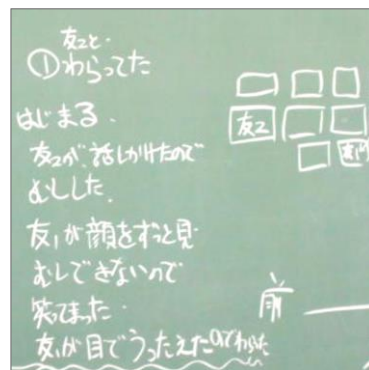 友2と・
①わらってた
はじまる.
友2が、話しかけたので
むしした.
友1が顔をずっと見・
むしできないので
笑てまった・
友1が目でうったえたのでわらった
友2
前